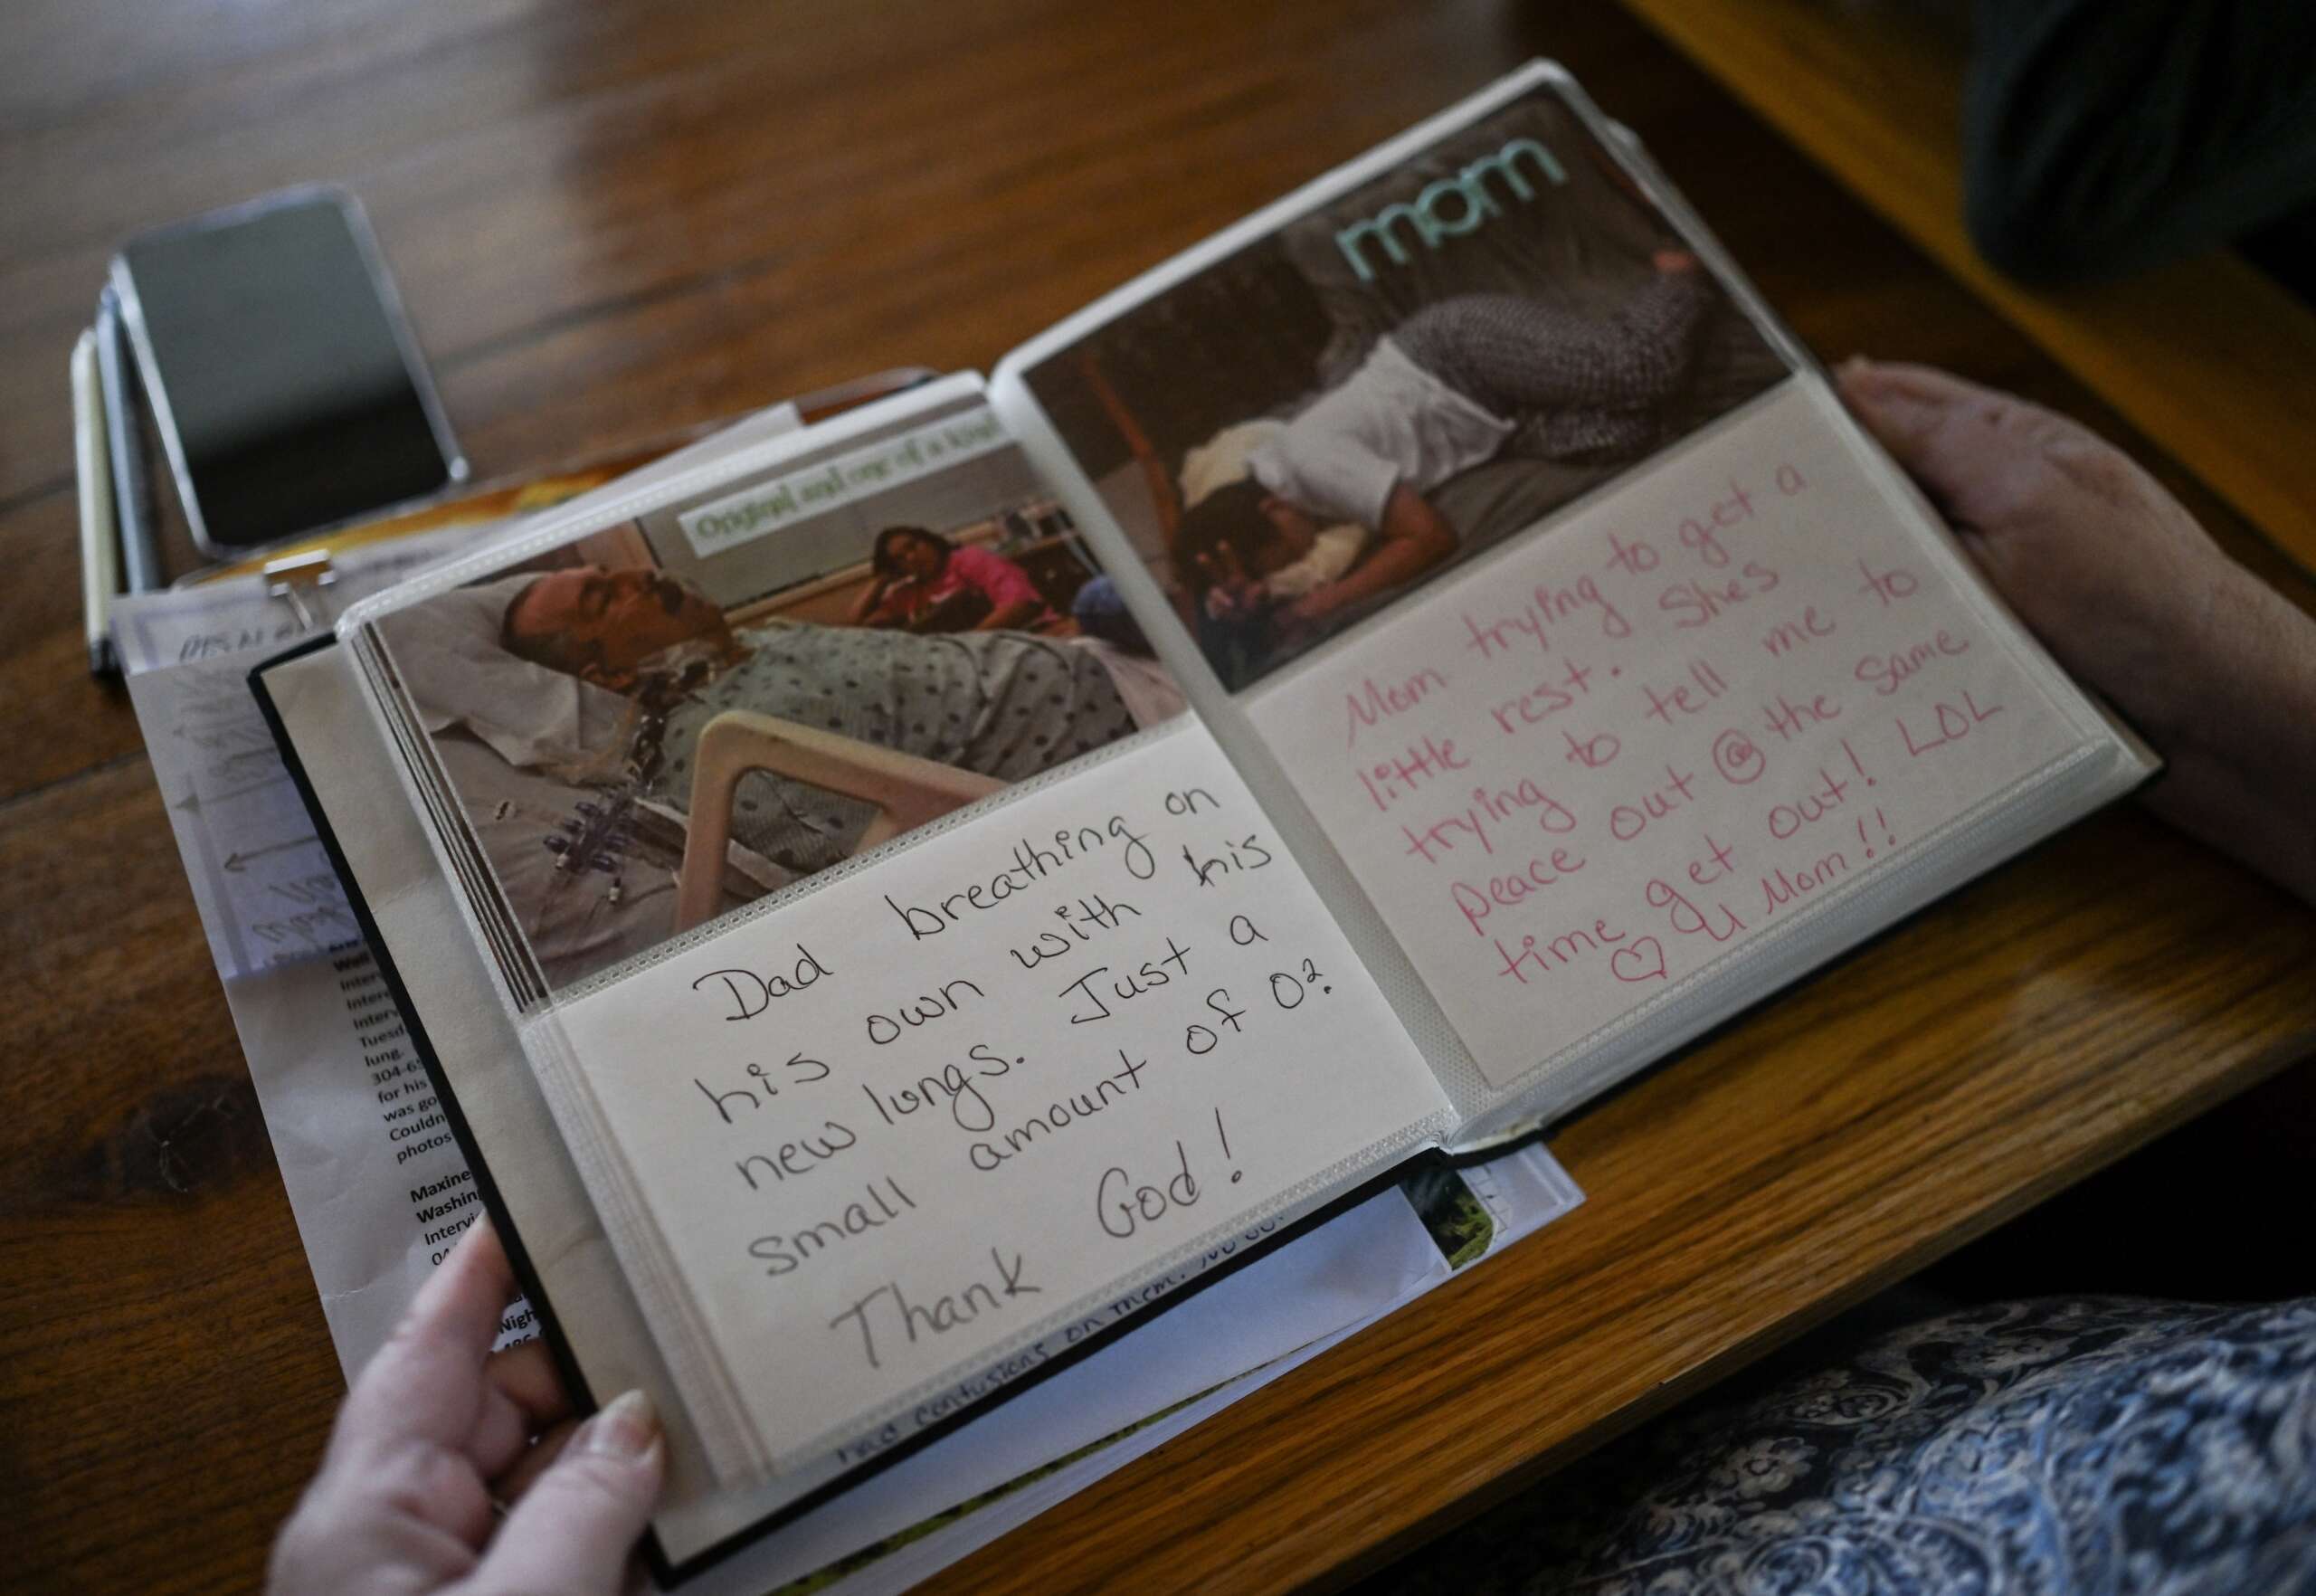 mom
Original and one of a kind
Dad breathing on
his own with his
new lungs. Just a
small amount of O2.
Thank God!
Mom trying to get a
little rest. Shes
trying to tell me to
peace out @ the same
time get out! LOL
♡ U Mom!!
Well
Tuesd
lung.
304-65
for his
was go
Couldn
photos
Maxine
Washin
Intervi
Nigh
had contusions on them.